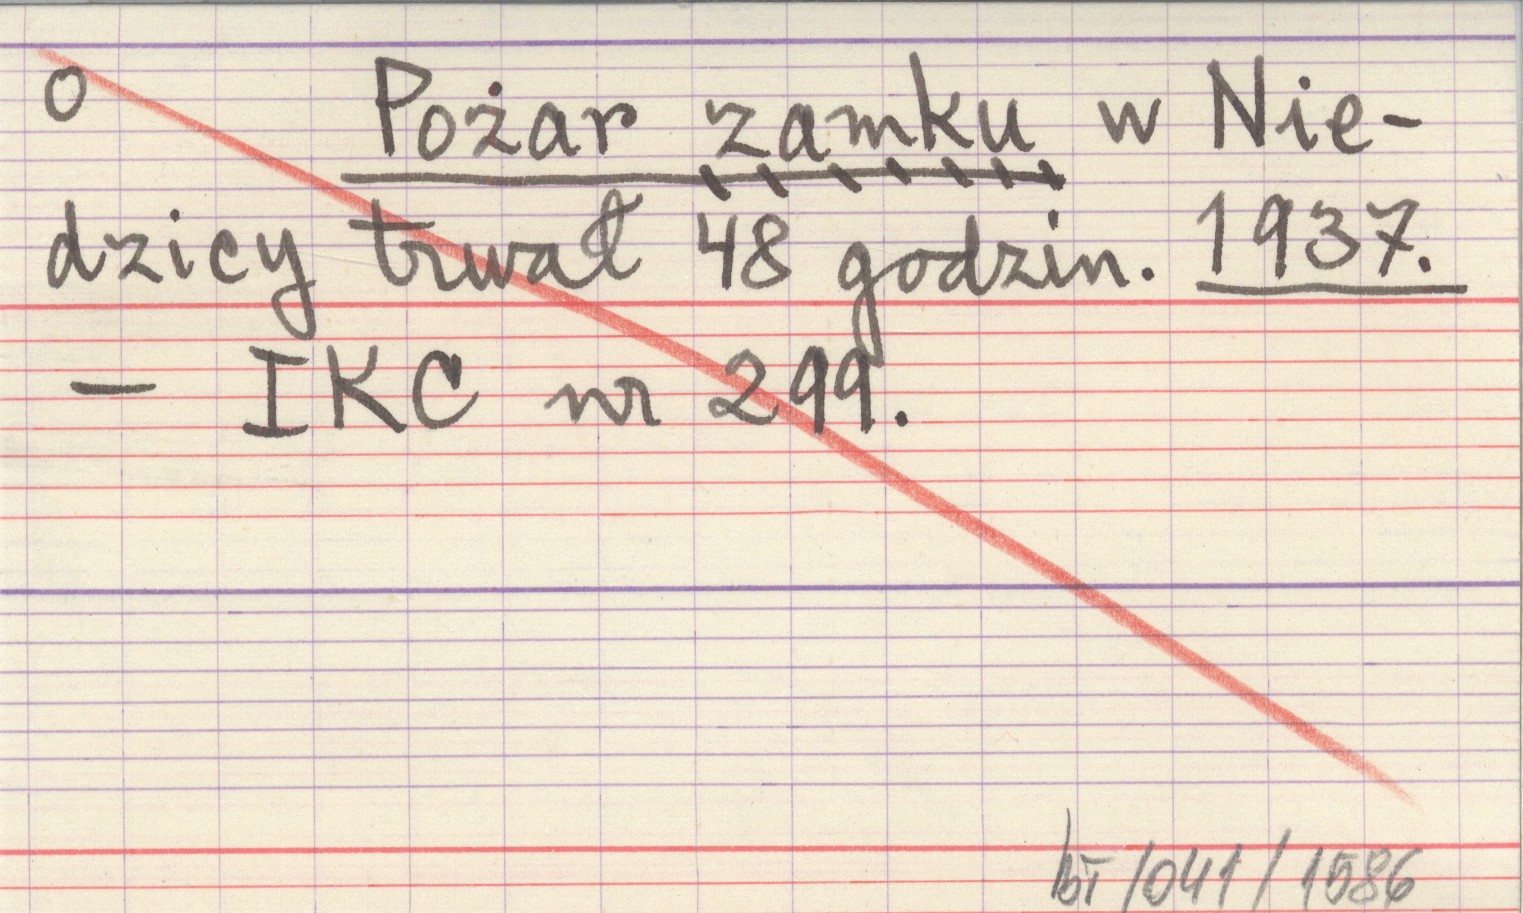 O Pożar zamku w Nie-
dzicy trwał 48 godzin. 1937.
— IKC nr 299.
bt/041/1586